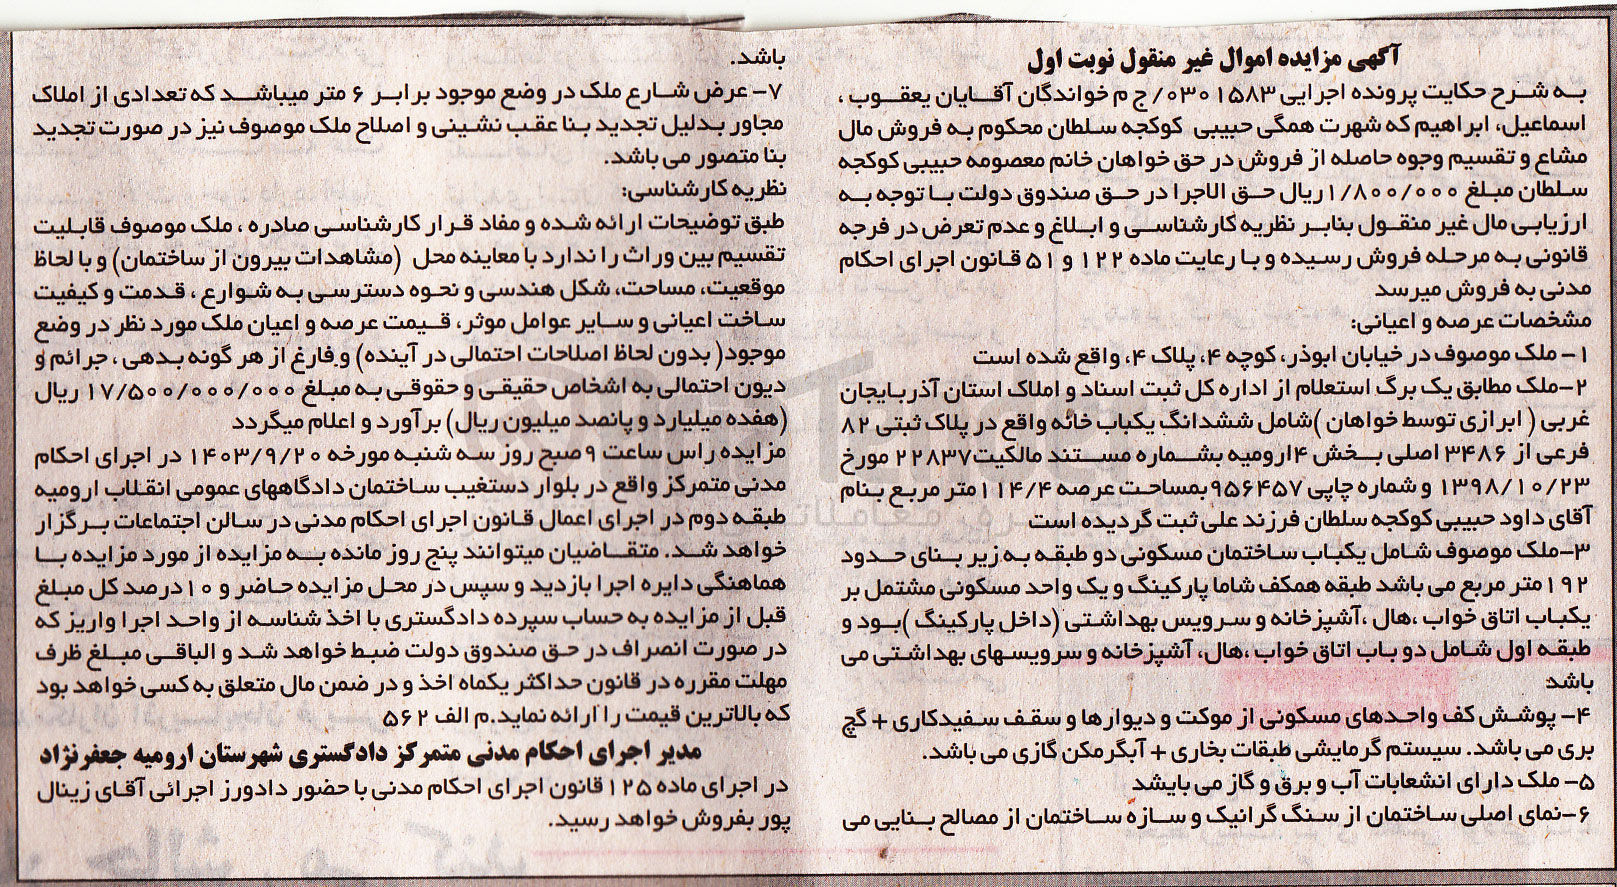 آگهی مزایده اموال غیر منقول نوبت اول
به شرح حکایت پرونده اجرایی ۰۳۰۱۵۸۳/ ج م خواندگان آقایان یعقوب ،
اسماعیل، ابراهیم که شهرت همگی حبیبی کوکجه سلطان محکوم به فروش مال
مشاع و تقسیم وجوه حاصله از فروش در حق خواهان خانم معصومه حبیبی کوکجه
سلطان مبلغ ۱/۸۰۰/۰۰۰ریال حق الاجرا در حق صندوق دولت با توجه به
ارزیابی مال غیر منقول بنابر نظریه کارشناسی و ابلاغ و عدم تعرض در فرجه
قانونی به مرحله فروش رسیده و با رعایت ماده ۱۲۲ و ۵۱ قانون اجرای احکام
مدنی به فروش میرسد
مشخصات عرصه و اعیانی:
۱- ملک موصوف در خیابان ابوذر، کوچه ۴، پلاک ۴، واقع شده است
۲-ملک مطابق یک برگ استعلام از اداره کل ثبت اسناد و املاک استان آذربایجان
غربی ( ابرازی توسط خواهان )شامل ششدانگ یکباب خانه واقع در پلاک ثبتی ۸۲
فرعی از ۳۴۸۶ اصلی بخش ۴ارومیه بشماره مستند مالکیت۲۲۸۳۷ مورخ
۱۳۹۸/۱۰/۲۳ و شماره چاپی ۹۵۶۴۵۷بمساحت عرصه ۱۱۴/۴متر مربع بنام
آقای داود حبیبی کوکجه سلطان فرزند علی ثبت گردیده است
۳-ملک موصوف شامل یکباب ساختمان مسکونی دو طبقه به زیر بنای حدود
۱۹۲متر مربع می باشد طبقه همکف شاما پارکینگ و یک واحد مسکونی مشتمل بر
یکباب اتاق خواب ،هال ،آشپزخانه و سرویس بهداشتی (داخل پارکینگ )بود و
طبقه اول شامل دو باب اتاق خواب ،هال، آشپزخانه و سرویسهای بهداشتی می
باشد
۴- پوشش کف واحدهای مسکونی از موکت و دیوارها و سقف سفیدکاری + گچ
بری می باشد. سیستم گرمایشی طبقات بخاری + آبگرمکن گازی می باشد.
۵- ملک دارای انشعابات آب و برق و گاز می بایشد
۶-نمای اصلی ساختمان از سنگ گرانیک و سازه ساختمان از مصالح بنایی می
باشد.
۷- عرض شارع ملک در وضع موجود برابر ۶ متر میباشد که تعدادی از املاک
مجاور بدلیل تجدید بنا عقب نشینی و اصلاح ملک موصوف نیز در صورت تجدید
بنا متصور می باشد.
نظریه کارشناسی:
طبق توضیحات ارائه شده و مفاد قرار کارشناسی صادره ، ملک موصوف قابلیت
تقسیم بین وراث را ندارد با معاینه محل (مشاهدات بیرون از ساختمان) و با لحاظ
موقعیت، مساحت، شکل هندسی و نحوه دسترسی به شوارع ، قدمت و کیفیت
ساخت اعیانی و سایر عوامل موثر، قیمت عرصه و اعیان ملک مورد نظر در وضع
موجود( بدون لحاظ اصلاحات احتمالی در آینده) وفارغ از هر گونه بدهی ، جرائم و
دیون احتمالی به اشخاص حقیقی و حقوقی به مبلغ ۱۷/۵۰۰/۰۰۰/۰۰۰ ریال
(هفده میلیارد و پانصد میلیون ریال) برآورد و اعلام میگردد
مزایده راس ساعت ۹صبح روز سه شنبه مورخه ۱۴۰۳/۹/۲۰ در اجرای احکام
مدنی متمرکز واقع در بلوار دستغیب ساختمان دادگاههای عمومی انقلاب ارومیه
طبقه دوم در اجرای اعمال قانون اجرای احکام مدنی در سالن اجتماعات برگزار
خواهد شد. متقاضیان میتوانند پنج روز مانده به مزایده از مورد مزایده با
هماهنگی دایره اجرا بازدید و سپس در محل مزایده حاضر و ۱۰درصد کل مبلغ
قبل از مزایده به حساب سپرده دادگستری با اخذ شناسه از واحد اجرا واریز که
در صورت انصراف در حق صندوق دولت ضبط خواهد شد و الباقی مبلغ ظرف
مهلت مقرره در قانون حداکثر یکماه اخذ و در ضمن مال متعلق به کسی خواهد بود
که بالاترین قیمت را ارائه نماید.م الف ۵۶۲
مدیر اجرای احکام مدنی متمرکز دادگستری شهرستان ارومیه جعفرنژاد
در اجرای ماده ۱۲۵ قانون اجرای احکام مدنی با حضور دادورز اجرائی آقای زینال
پور بفروش خواهد رسید.